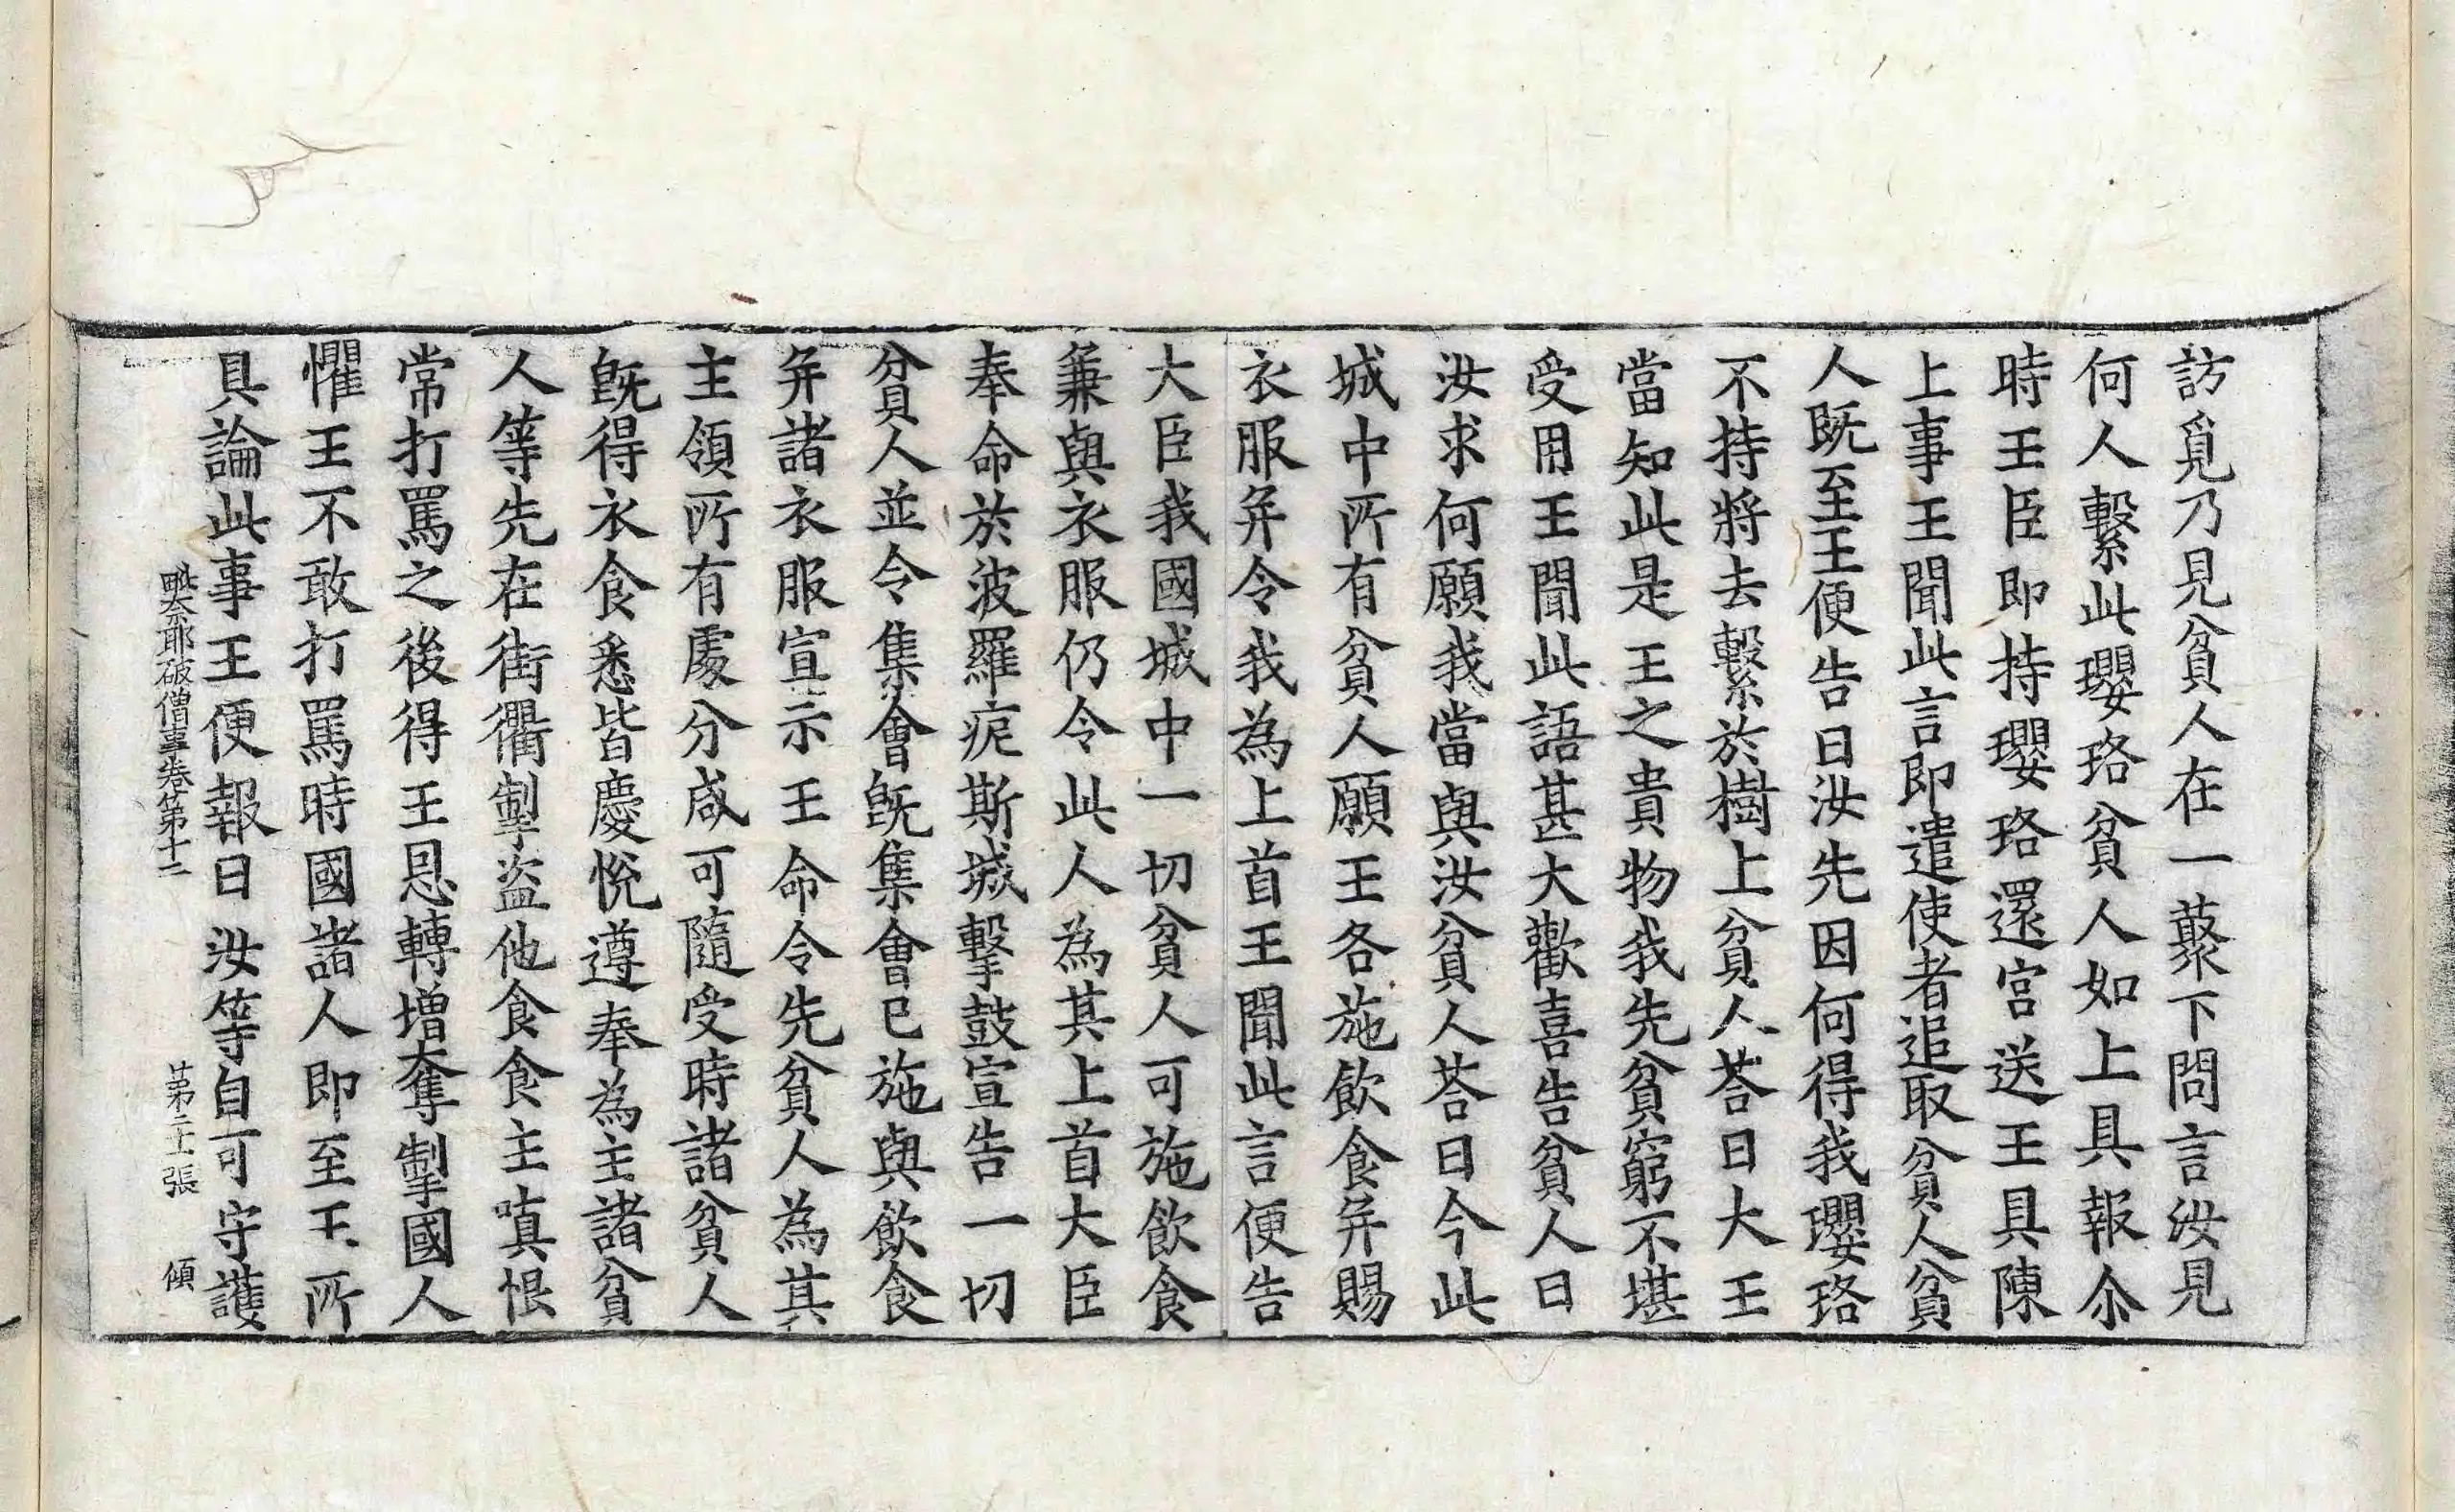 訪覓乃見貧人在一藂下問言汝見
何人繫此瓔珞貧人如上具報尒
時王臣即持瓔珞還宮送王具陳
上事王聞此言即遣使者追取貧人貧
人既至王便告曰汝先因何得我瓔珞
不持將去繫於樹上貧人荅曰大王
當知此是王之貴物我先貧窮不堪
受用王聞此語甚大歡喜告貧人曰
汝求何願我當與汝貧人荅曰今此
城中所有貧人願王各施飲食并賜
衣服并令我為上首王聞此言便告
大臣我國城中一切貧人可施飲食
兼與衣服仍令此人為其上首大臣
奉命於波羅痆斯城擊鼓宣告一切
貧人並令集會既集會已施與飲食
并諸衣服宣示王命令先貧人為其
主領所有處分咸可隨受時諸貧人
既得衣食悉皆慶悅遵奉為主諸貧
人等先在街衢掣盜他食食主嗔恨
常打罵之後得王恩轉增奪掣國人
懼王不敢打罵時國諸人即至王所
具論此事王便報曰汝等自可守護
毗奈耶破僧事卷第十二 第二十張 傾